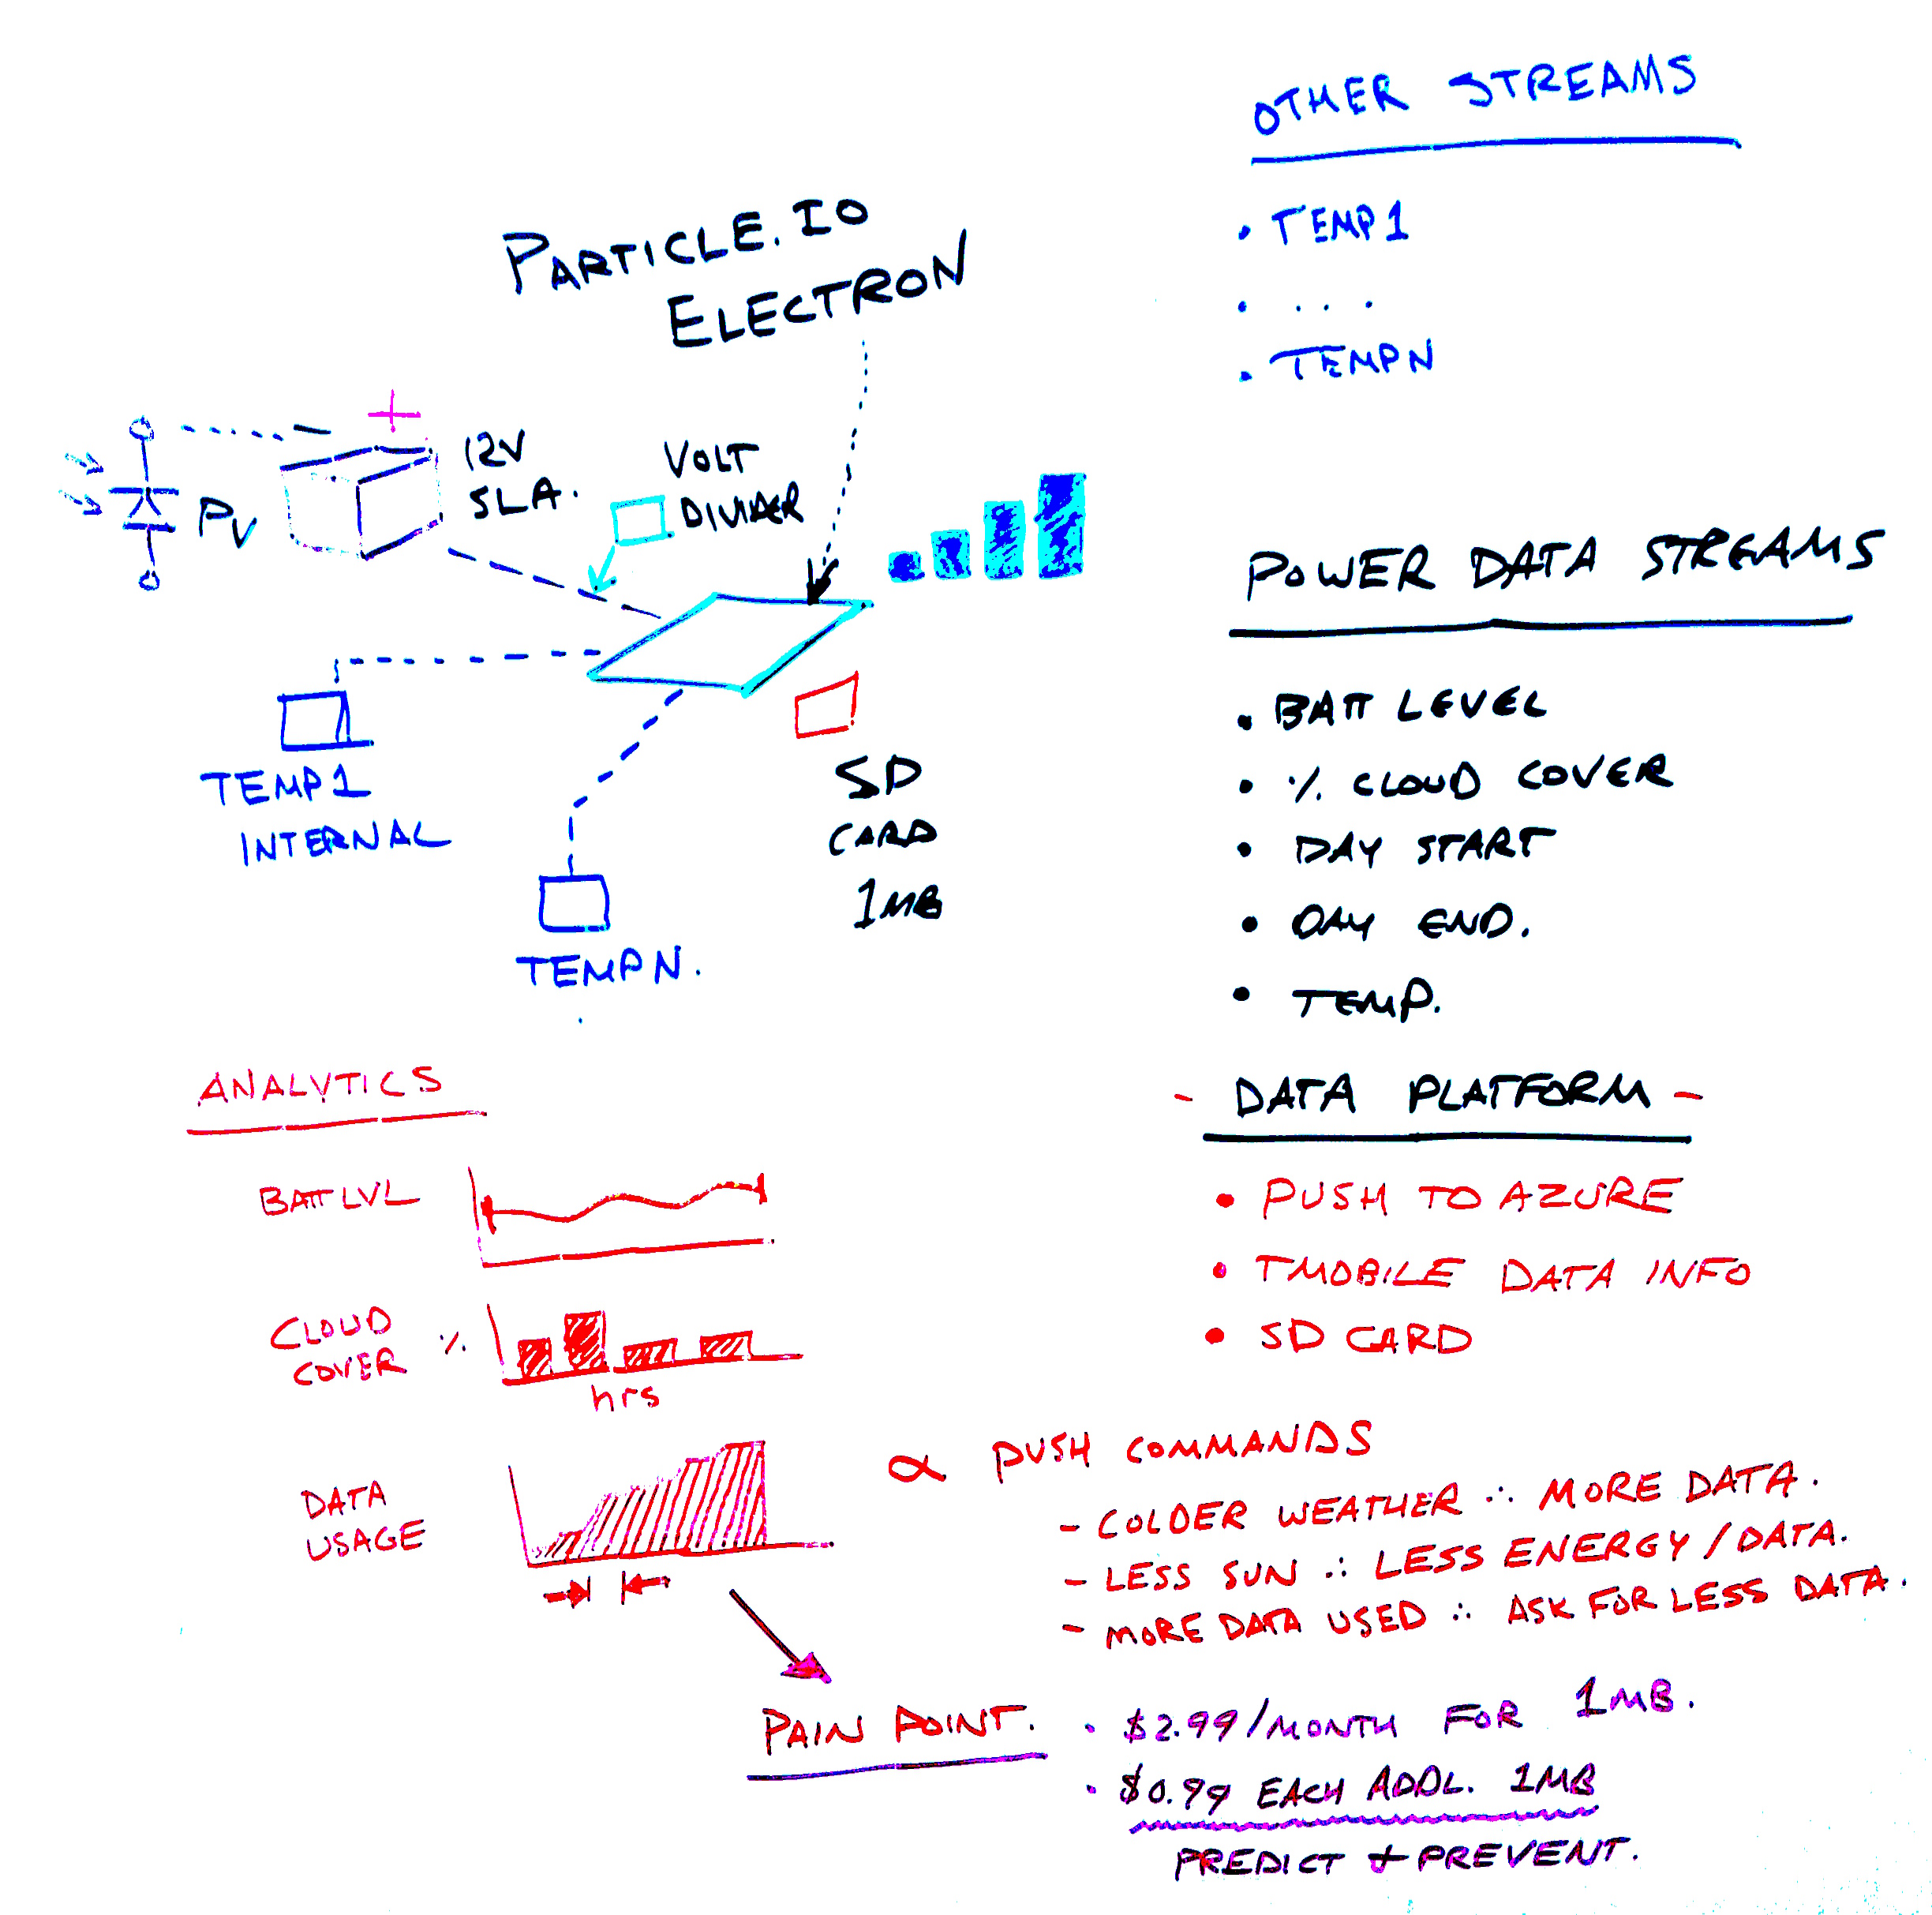 OTHER STREAMS
• TEMP1
• ...
• TEMPN
PARTICLE.IO
ELECTRON
+
PV
12V
SLA.
VOLT
DIVIDER
TEMP1
INTERNAL
TEMPN.
SD
CARD
1MB
POWER DATA STREAMS
• BATT LEVEL
• % CLOUD COVER
• DAY START
• DAY END.
• TEMP.
- DATA PLATFORM -
• PUSH TO AZURE
• TMOBILE DATA INFO
• SD CARD
ANALYTICS
BATT LVL
CLOUD
COVER
%
hrs
DATA
USAGE
∝ PUSH COMMANDS
- COLDER WEATHER ∴ MORE DATA.
- LESS SUN ∴ LESS ENERGY/DATA.
- MORE DATA USED ∴ ASK FOR LESS DATA.
PAIN POINT.
• $2.99/MONTH FOR 1MB.
• $0.99 EACH ADDL. 1MB
PREDICT + PREVENT.